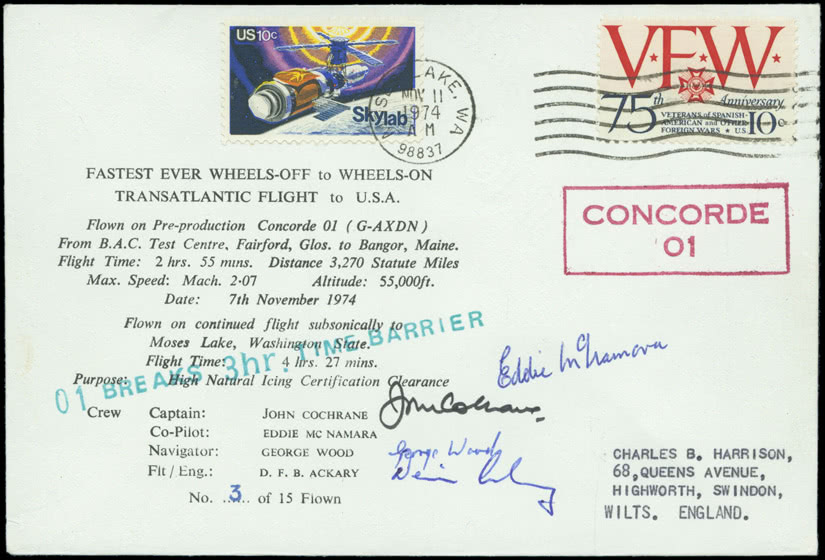 US 10c
Skylab
MOSES LAKE, WA
NOV 11
1974
AM
98837
V.F.W.
75th Anniversary
VETERANS of SPANISH-
AMERICAN and OTHER
FOREIGN WARS ★ U.S. 10c
FASTEST EVER WHEELS-OFF to WHEELS-ON
TRANSATLANTIC FLIGHT to U.S.A.
CONCORDE
01
Flown on Pre-production Concorde 01 (G-AXDN)
From B.A.C. Test Centre, Fairford, Glos. to Bangor, Maine.
Flight Time: 2 hrs. 55 mins. Distance 3,270 Statute Miles
Max. Speed: Mach. 2·07 Altitude: 55,000ft.
Date: 7th November 1974
Flown on continued flight subsonically to
Moses Lake, Washington State.
Flight Time: 4 hrs. 27 mins.
01 BREAKS 3hr. TIME BARRIER
Purpose: High Natural Icing Certification Clearance
Eddie McNamara
Crew Captain: JOHN COCHRANE
John Cochrane
Co-Pilot: EDDIE MC NAMARA
Navigator: GEORGE WOOD
George Wood
Flt / Eng.: D. F. B. ACKARY
No. 3 of 15 Flown
CHARLES B. HARRISON,
68, QUEENS AVENUE,
HIGHWORTH, SWINDON,
WILTS. ENGLAND.